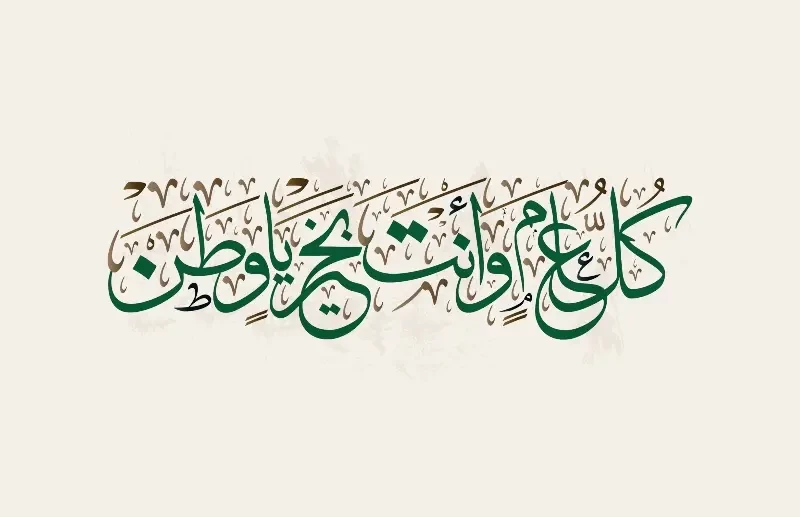 كل عام وأنت بخير يا وطن